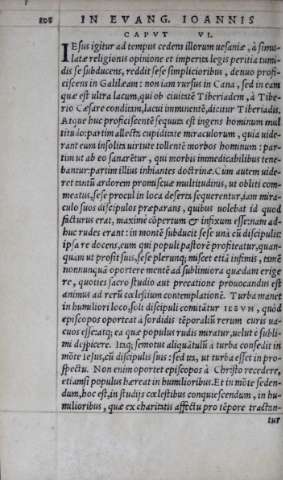 208 IN EVANG. IOANNIS
CAPVT VI.
IEsus igitur ad tempus cedens illorum uesaniæ, à simu-
latæ religionis opinione et imperitę legis peritia tumi-
dis se subducens, reddit sese simplicioribus, denuo profi-
ciscens in Galilæam: non iam rursus in Cana, sed in eam
quæ est ultra lacum, qui ob ciuitatē Tiberiadem, à Tibe-
rio Cæsare conditam, lacui imminentē, dicitur Tiberiadis.
Atque huc proficiscentē sequuta est ingens hominum mul
titudo: partim allecta cupiditate miraculorum, quia uide-
rant eum insolita uirtute tollentē morbos hominum: par-
tim ut ab eo sanarētur, qui morbis immedicabilibus tene-
bantur: partim illius inhiantes doctrinæ. Cum autem uide-
ret tantū ardorem promiscuæ multitudinis, ut obliti com-
meatus, sese procul in loca deserta sequerentur, iam mira-
culo suos discipulos præparans, quibus nolebat id quod
facturus erat, maxime cōpertum & infixum esse: nam ad-
huc rudes erant: in montē subducit sese unà cū discipulis:
ipsa re docens, eum qui populi pastorē profiteatur, quan-
quam ut prosit suis, sese plerunq; miscet etiā infimis, tamē
nonnunquā oportere mentē ad sublimiora quædam erige
re, quoties sacro studio aut precatione prouocandus est
animus ad rerū cœlestium contemplationē. Turba manet
in humiliori loco, soli discipuli comitātur IESVM, quòd
episcopos oporteat à sordidis tēporaliū rerum curis ua-
cuos esse: atq; ea quæ populus rudis miratur, uelut è subli-
mi despicere. Itaq; semotus aliquātulū à turba consedit in
mōte Iesus, cū discipulis suis: sed ita, ut turba esset in pro-
spectu. Non enim oportet episcopos à Christo recedere,
etiamsi populus hæreat in humilioribus. Et in mōte seden-
dum, hoc est, in studijs cœlestibus conquiescendum, in hu-
milioribus, quæ ex charitatis affectu pro tēpore tractan-
tur